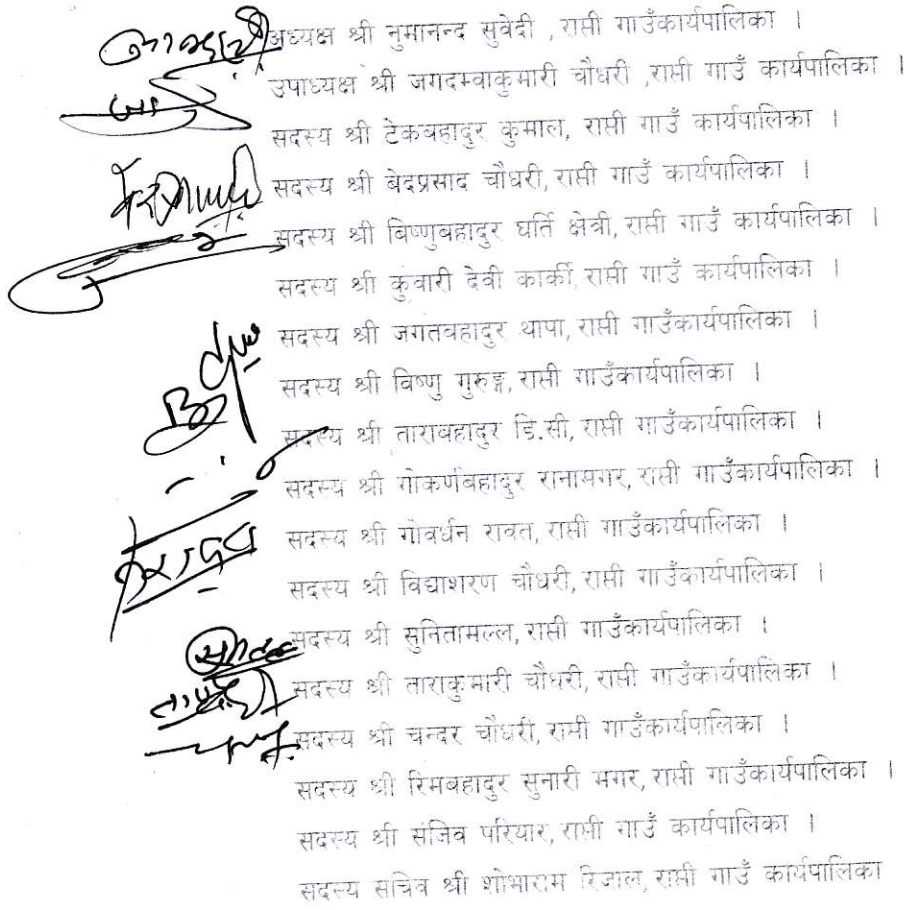 अध्यक्ष श्री नुमानन्द सुवेदी ,राप्ती गाउँकार्यपालिका ।
उपाध्यक्ष श्री जगदम्वाकुमारी चौधरी ,राप्ती गाउँ कार्यपालिका ।
सदस्य श्री टेकबहादुर कुमाल, राप्ती गाउँ कार्यपालिका ।
सदस्य श्री बेदप्रसाद चौधरी, राप्ती गाउँ कार्यपालिका ।
सदस्य श्री बिष्णुबहादुर घर्ति क्षेत्री, राप्ती गाउँ कार्यपालिका ।
सदस्य श्री कुवारी देवी कार्की, राप्ती गाउँ कार्यपालिका ।
सदस्य श्री जगतवहादुर थापा, राप्ती गाउँकार्यपालिका ।
सदस्य श्री विष्णु गुरुङ्ग, राप्ती गाउँकार्यपालिका ।
सदस्य श्री ताराबहादुर डि.सी, राप्ती गाउँकार्यपालिका ।
सदस्य श्री गोकर्णबहादुर रानामगर, राप्ती गाउँकार्यपालिका ।
सदस्य श्री गोवर्धन रावत, राप्ती गाउँकार्यपालिका ।
सदस्य श्री विद्याशरण चौधरी, राप्ती गाउँकार्यपालिका ।
सदस्य श्री सुनितामल्ल, राप्ती गाउँकार्यपालिका ।
सदस्य श्री ताराकुमारी चौधरी, राप्ती गाउँकार्यपालिका ।
सदस्य श्री चन्दर चौधरी, राप्ती गाउँकार्यपालिका ।
सदस्य श्री रिमबहादुर सुनारी मगर, राप्ती गाउँकार्यपालिका ।
सदस्य श्री संजिव परियार, राप्ती गाउँ कार्यपालिका ।
सदस्य सचिव श्री शोभाराम रिजाल, राप्ती गाउँ कार्यपालिका